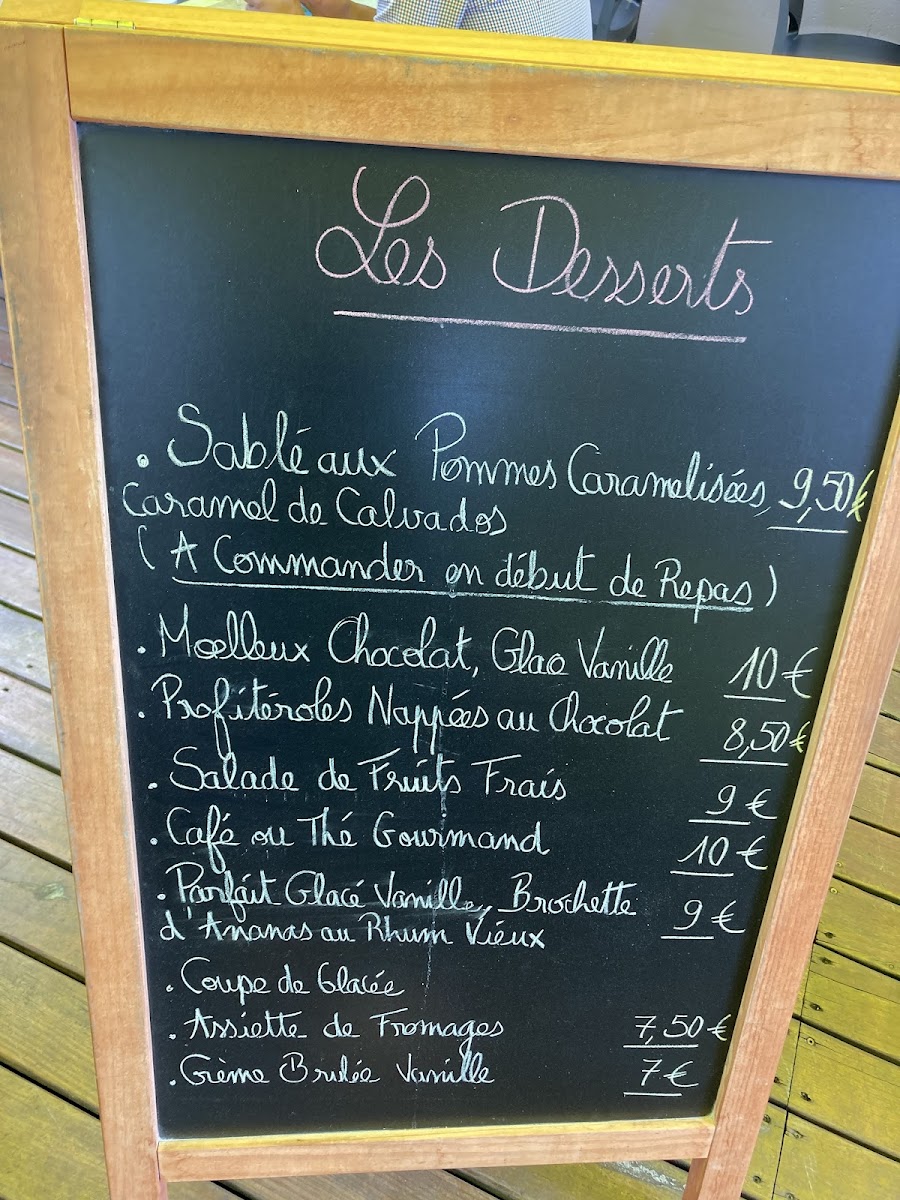 Les Desserts
. Sablé aux Pommes Caramelisées, 9,50€
Caramel de Calvados
(A Commander en début de Repas)
. Moelleux Chocolat, Glace Vanille 10€
. Profitéroles Nappées au Chocolat 8,50€
. Salade de Fruits Frais 9€
. Café ou Thé Gourmand 10€
. Parfait Glacé Vanille, Brochette
d'Ananas au Rhum Vieux 9€
. Coupe de Glacée
. Assiette de Fromages 7,50€
. Crème Brulée Vanille 7€